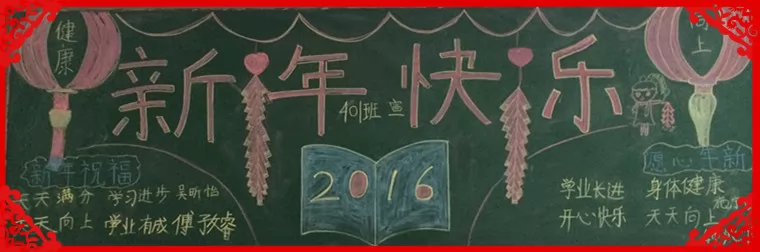 健康
向上
新年快乐
401班 宣
2016
新年祝福
天天满分 学习进步 吴昕怡
天天向上 学业有成 傅孜睿
愿心年新
学业长进 身体健康
开心快乐 天天向上